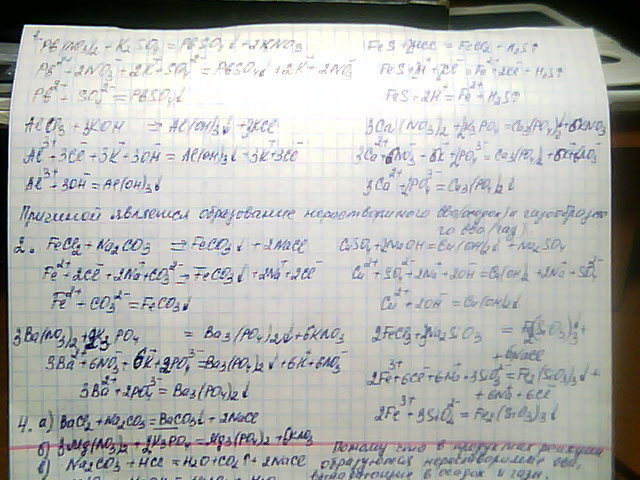 Pb(NO3)2 + K2SO3 = PbSO3↓ + 2KNO3
Pb²⁺ + 2NO3⁻ + 2K⁺ + SO4²⁻ = PbSO4↓ + 2K⁺ + 2NO3⁻
Pb²⁺ + SO4²⁻ = PbSO4↓
AlCl3 + 3KOH = Al(OH)3↓ + 3KCl
Al³⁺ + 3Cl⁻ + 3K⁺ + 3OH⁻ = Al(OH)3↓ + 3K⁺ + 3Cl⁻
Al³⁺ + 3OH⁻ = Al(OH)3↓
FeS + 2HCl = FeCl2 + H2S↑
FeS + 2H⁺ + 2Cl⁻ = Fe²⁺ + 2Cl⁻ + H2S↑
FeS + 2H⁺ = Fe²⁺ + H2S↑
3Ca(NO3)2 + 2K3PO4 = Ca3(PO4)2↓ + 6KNO3
3Ca²⁺ + 6NO3⁻ + 6K⁺ + 2PO4³⁻ = Ca3(PO4)2 + 6K⁺ + 6NO3⁻
3Ca²⁺ + 2PO4³⁻ = Ca3(PO4)2↓
Причиной является образование нерастворимого в-ва(осадок) и газообразно
го в-ва (газ)
2. FeCl2 + Na2CO3 = FeCO3↓ + 2NaCl
Fe²⁺ + 2Cl⁻ + 2Na⁺ + CO3²⁻ = FeCO3↓ + 2Na⁺ + 2Cl⁻
Fe²⁺ + CO3²⁻ = FeCO3↓
CuSO4 + 2NaOH = Cu(OH)2↓ + Na2SO4
Cu²⁺ + SO4²⁻ + 2Na⁺ + 2OH⁻ = Cu(OH)2 + 2Na⁺ + SO4²⁻
Cu²⁺ + 2OH⁻ = Cu(OH)2↓
3Ba(NO3)2 + 2K3PO4 = Ba3(PO4)2↓ + 6KNO3
3Ba²⁺ + 6NO3⁻ + 6K⁺ + 2PO4³⁻ = Ba3(PO4)2↓ + 6K⁺ + 6NO3⁻
3Ba²⁺ + 2PO4³⁻ = Ba3(PO4)2↓
2FeCl3 + 3Na2SiO3 = Fe2(SiO3)3↓ +
+ 6NaCl
2Fe³⁺ + 6Cl⁻ + 6Na⁺ + 3SiO3²⁻ = Fe2(SiO3)3↓ +
+ 6Na⁺ + 6Cl⁻
2Fe³⁺ + 3SiO3²⁻ = Fe2(SiO3)3↓
4. а) BaCl2 + Na2CO3 = BaCO3↓ + 2NaCl
б) 3Mg(NO3)2 + 2K3PO4 = Mg3(PO4)2 + 6KNO3
в) Na2CO3 + HCl = H2O + CO2↑ + 2NaCl
Потому что в продуктах реакции
образуются нерастворимые в-ва,
выпадающие в осадок и газы.